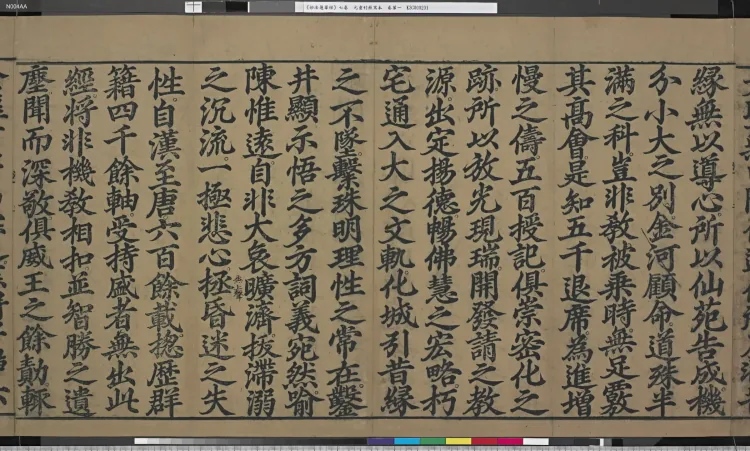 N004AA
緣無以導心所以仙苑告成機
分小大之別金河顧命道殊半
滿之科豈非教被乘時無足覈
其高會是知五千退席為進增
慢之儔五百授記俱崇密化之
跡所以放光現瑞開發請之教
源出定揚德暢佛慧之宏略朽
宅通入大之文軌化城引昔緣
之不墜繫珠明理性之常在鑿
井顯示悟之多方詞義宛然喻
陳惟遠自非大哀曠濟拔滯溺
之沉流一極悲心拯昏迷之失
性自漢至唐六百餘載摠歷群
籍四千餘軸受持盛者無出此
經將非機教相扣並智勝之遺
塵聞而深敬俱威王之餘勣輒